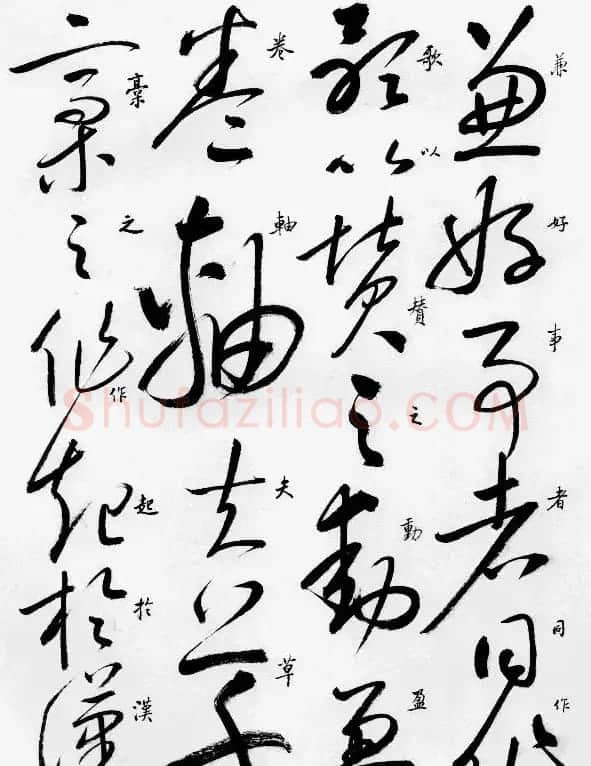 兼好事者同作
歌以贊之動盈
卷軸夫草
稾之作起於漢
shufaziliao.COM